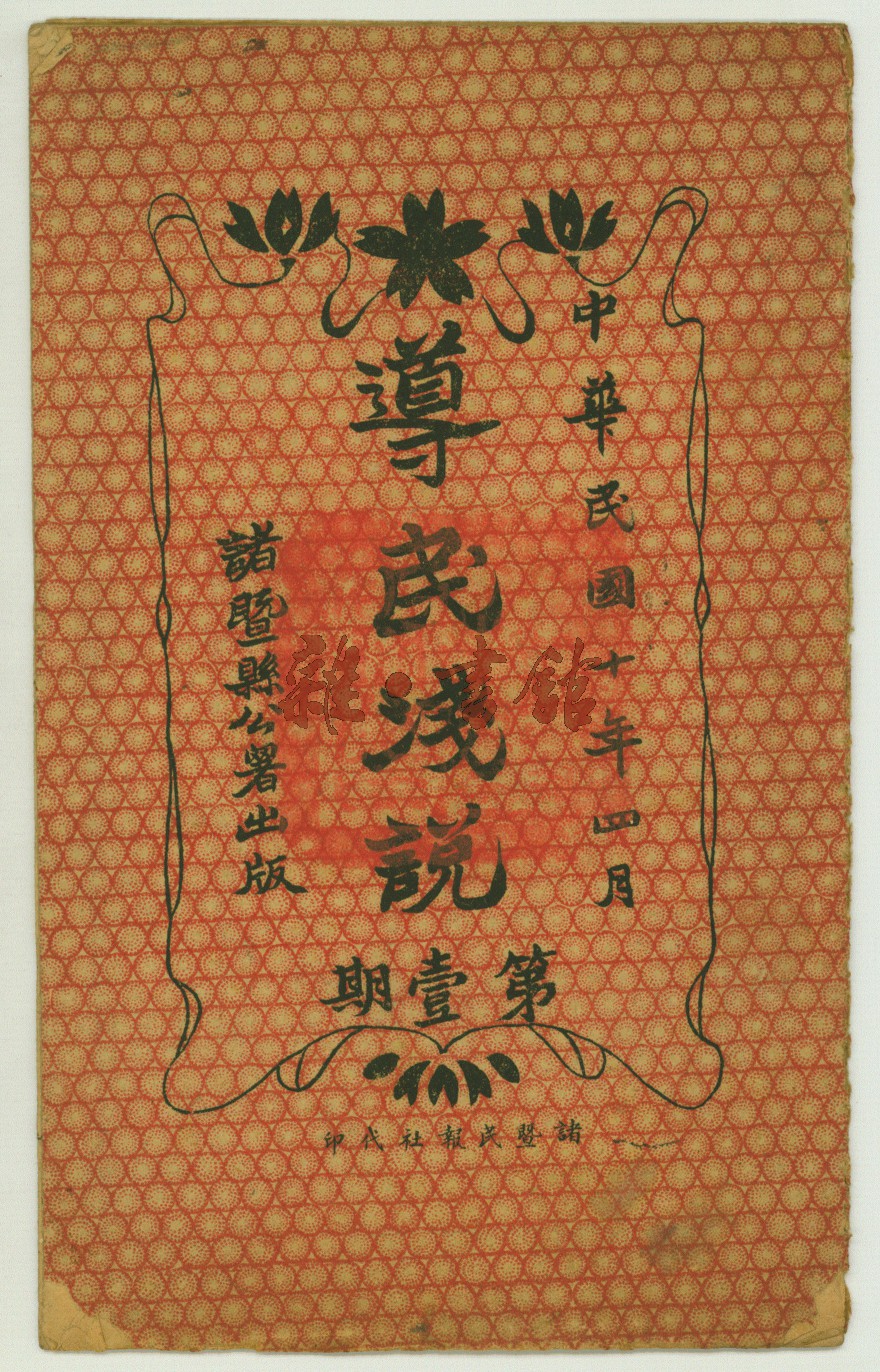 中華民國十年四月
導民淺説
第壹期
諸暨縣公署出版
諸暨民報社代印
雜·書館